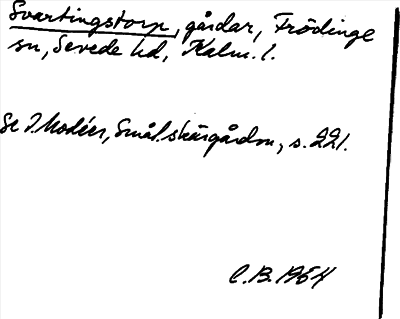 Svartingstorp, gårdar, Frödinge
sn, Sevede hd, Kalm. l.
Se I. Modéer, Smål. skärgårdsn, s. 221.
C.B. 1964